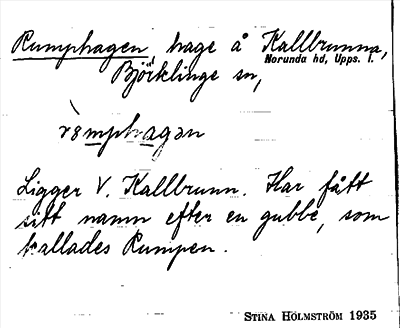 Rumphagen, hage å Kallbrunna,
Norunda hd, Upps. l.
Björklinge sn,
Ligger V. Kallbrunn. Har fått
sitt namn efter en gubbe, som
kallades Rumpen.
STINA HOLMSTRÖM 1935